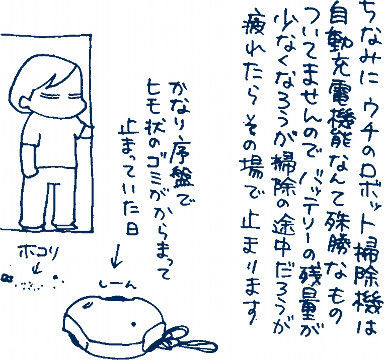 ちなみにウチのロボット掃除機は
自動充電機能なんて殊勝なもの
ついてませんのでバッテリーの残量が
少なくなろうが掃除の途中だろうが
疲れたらその場で止まります
かなり序盤で
ヒモ状のゴミがからまって
止まっていた日
ホコリ
しーん